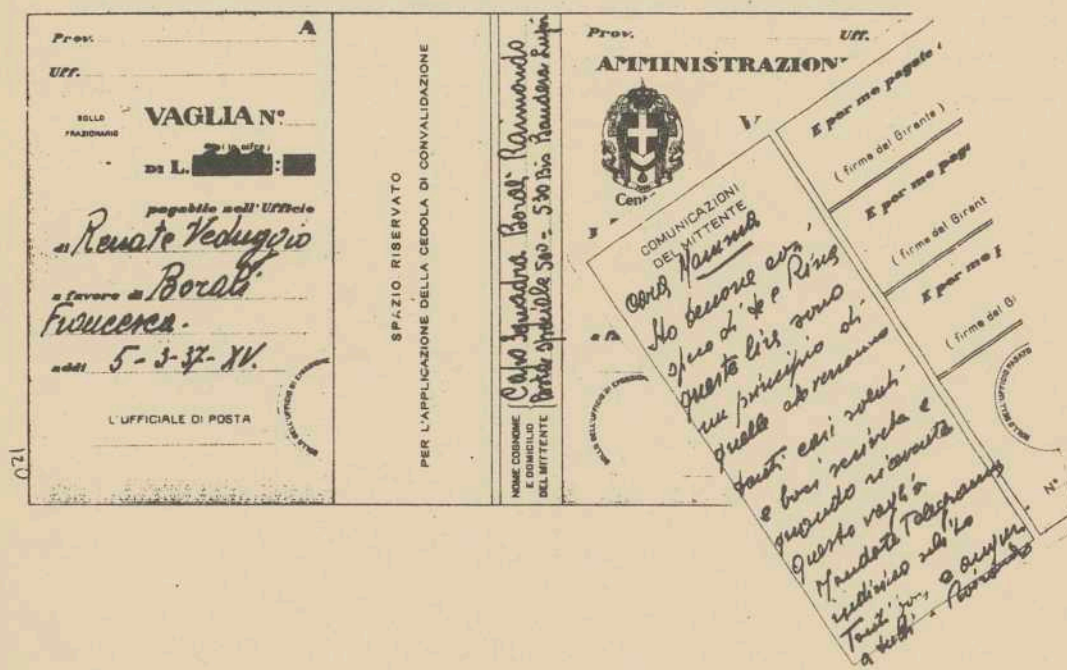 Prov.
A
Uff.
BOLLO
FRAZIONARIO
VAGLIA N°
DI L.
pagabile nell'Ufficio
di Renate Veduggio
a favore di Borali
Francesca.
addì 5-3-37-XV.
L'UFFICIALE DI POSTA
120
SPAZIO RISERVATO
PER L'APPLICAZIONE DELLA CEDOLA DI CONVALIDAZIONE
NOME COGNOME
E DOMICILIO
DEL MITTENTE
Capo Squadra Borali Raimondo
speciale 500 = 530 Bis Bandera Lupi
Prov.
Uff.
AMMINISTRAZION
V
Cen
COMUNICAZIONI
DEL MITTENTE
cara Mamma
Sto benone così
spero di te e Rina
queste lire sono
un principio di
quelle che verranno
tanti cari saluti
e baci
quando ricevente
questo vaglia
Mandate Telegramma
indirizzo solito
Tanti
a tutti - Raimondo
E per me pagate
(firma del Girante)
E per me paga
(firma del Girant
E per me p
(firma del Gi
N°